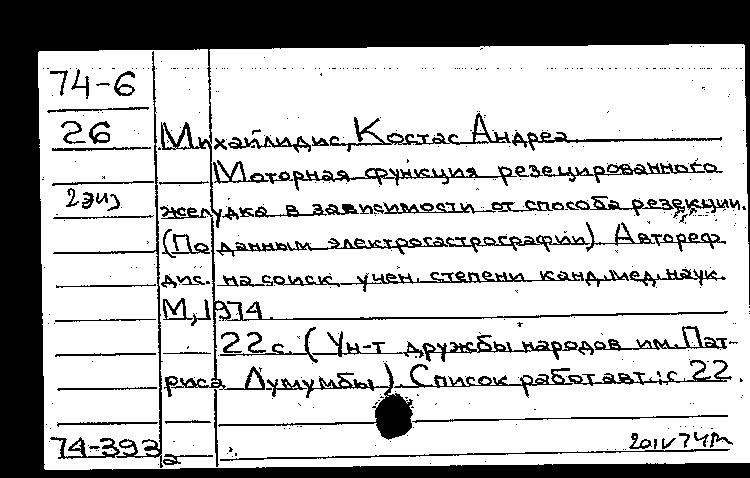 74-6
26
Михайлидис, Костас Андреа
Моторная функция резецированного
2 экз
желудка в зависимости от способа резекции.
(По данным электрогастрографии). Автореф.
дис. на соиск. учен. степени канд. мед. наук.
М, 1974.
22 с. ( Ун-т дружбы народов им. Пат-
риса Лумумбы ). Список работ авт.: с 22.
74-393